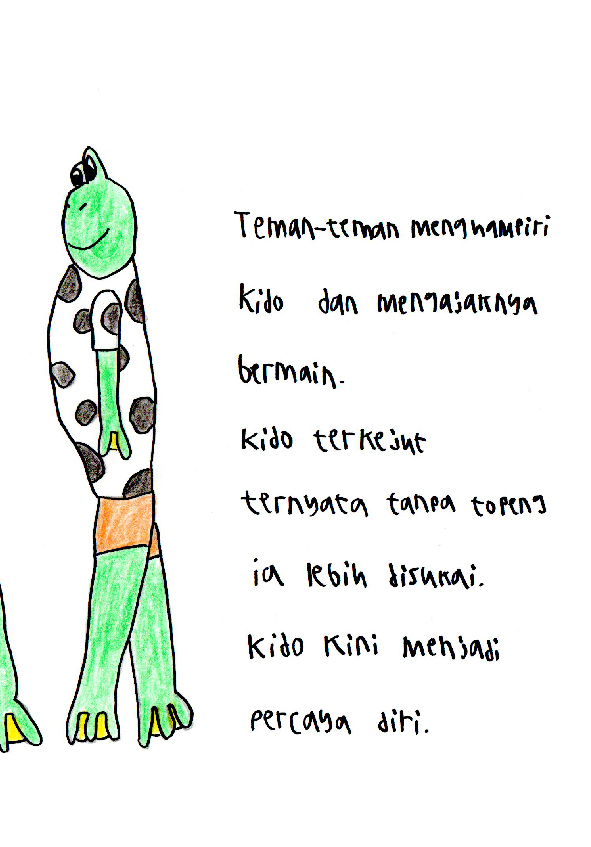 Teman-teman menghampiri
Kido dan mengajaknya
bermain.
Kido terkejut
ternyata tanpa topeng
ia lebih disukai.
Kido Kini menjadi
percaya diri.